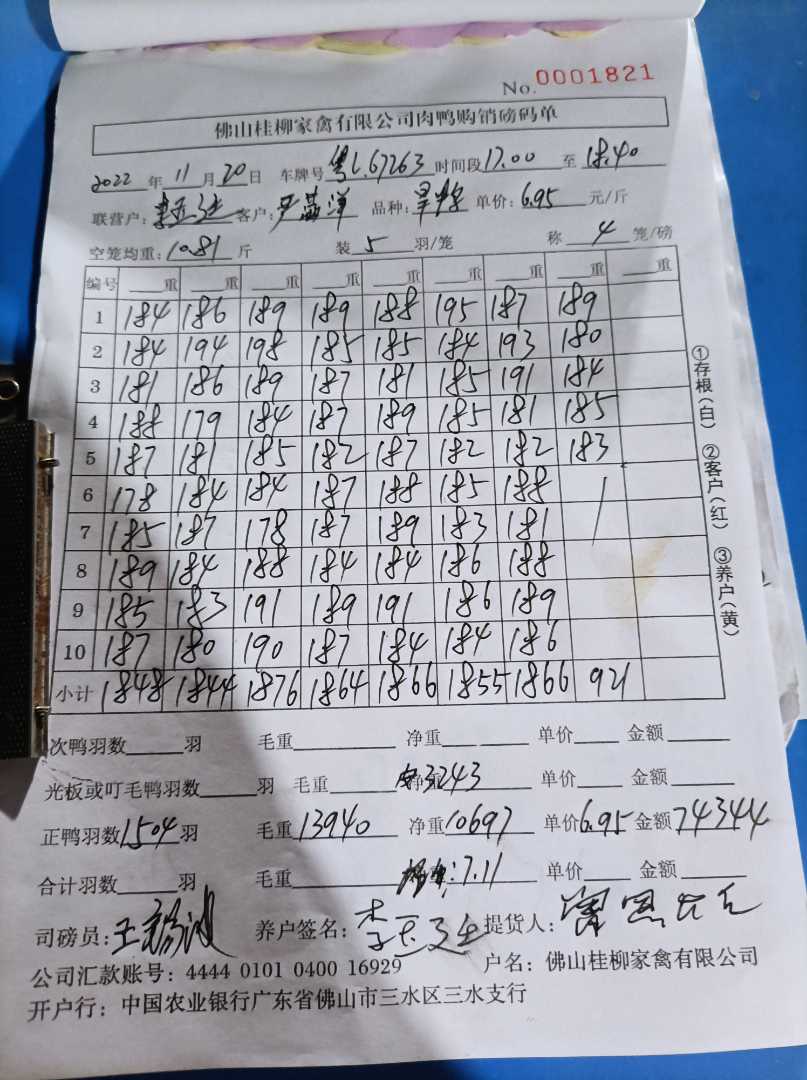 No. 0001821
佛山桂柳家禽有限公司肉鸭购销磅码单
2022 年 11 月 20 日 车牌号 粤L.67263 时间段 17.00 至 18.40
联营户: 客户: 严 洋 品种: 单价: 6.95 元/斤
空笼均重: 10.81 斤 装 5 羽/笼 称 4 笼/磅
编号 重 重 重 重 重 重 重 重 重
1 184 186 189 189 188 195 187 189
2 184 194 198 185 185 184 193 180
3 181 186 189 187 181 185 191 184
4 188 179 184 187 189 185 181 185
5 187 181 185 182 187 182 182 183
6 178 184 184 187 188 185 188
7 185 187 178 187 189 183 181
8 189 184 188 184 184 186 188
9 185 183 191 189 191 186 189
10 187 180 190 187 184 184 186
小计 1848 1844 1876 1864 1866 1855 1866 921
①存根(白) ②客户(红) ③养户(黄)
次鸭羽数 羽 毛重 净重 单价 金额
光板或叮毛鸭羽数 羽 毛重 净重 3243 单价 金额
正鸭羽数 1504 羽 毛重 13940 净重 10697 单价 6.95 金额 74344
合计羽数 羽 毛重 : 7.11 单价 金额
司磅员: 王 养户签名: 李 提货人:
公司汇款账号: 4444 0101 0400 16929 户名: 佛山桂柳家禽有限公司
开户行: 中国农业银行广东省佛山市三水区三水支行